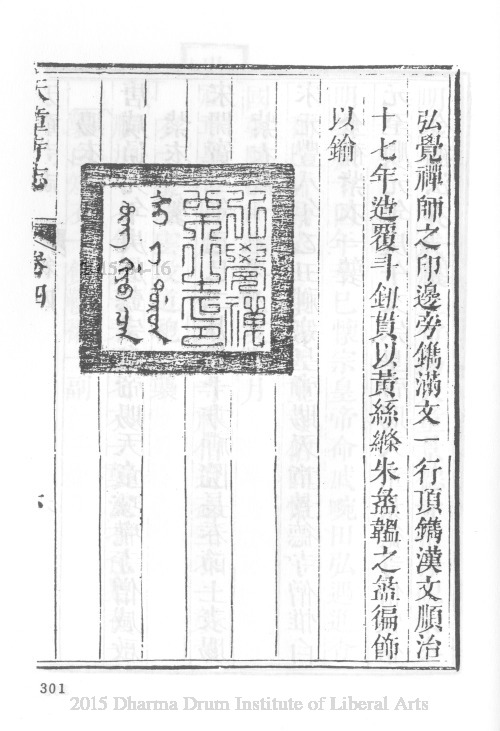 弘覺禪師之印邊旁鐫滿文一行頂鐫漢文順治
十七年造覆斗鈕貫以黃絲絛朱盝韞之盝徧飾
以鍮
弘覺禪
師之印
天童寺志
卷四
301
2015 Dharma Drum Institute of Liberal Arts